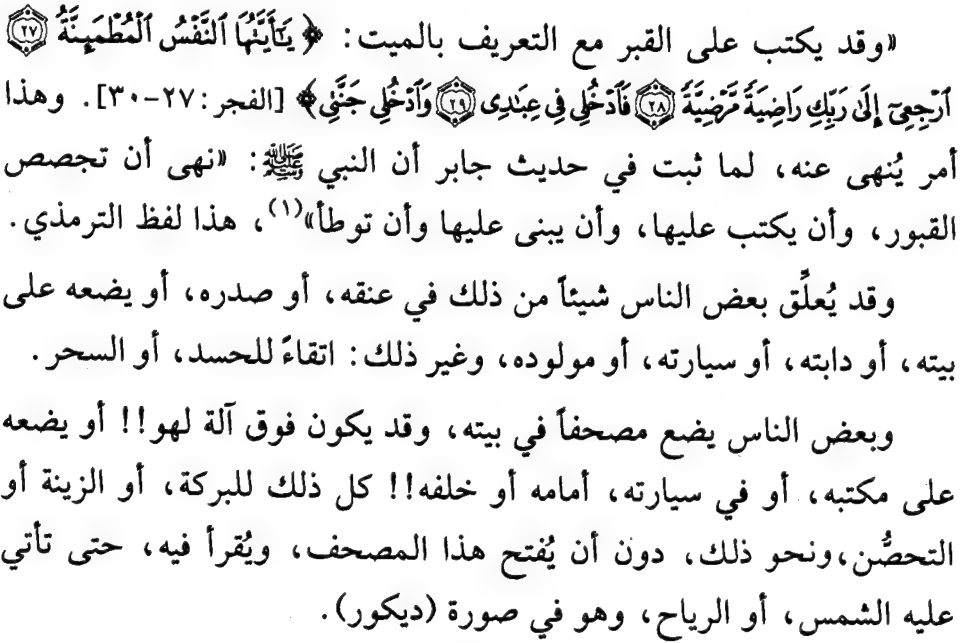 «وقد يكتب على القبر مع التعريف بالميت: ﴿ يَٰٓأَيَّتُهَا ٱلنَّفْسُ ٱلْمُطْمَئِنَّةُ ۝٢٧
ٱرْجِعِىٓ إِلَىٰ رَبِّكِ رَاضِيَةً مَّرْضِيَّةً ۝٢٨ فَٱدْخُلِى فِى عِبَٰدِى ۝٢٩ وَٱدْخُلِى جَنَّتِى ﴾ [الفجر: ٢٧-٣٠]. وهذا
أمر يُنهى عنه، لما ثبت في حديث جابر أن النبي ﷺ: «نهى أن تجصص
القبور، وأن يكتب عليها، وأن يبنى عليها وأن توطأ»(١)، هذا لفظ الترمذي.
وقد يُعلِّق بعض الناس شيئاً من ذلك في عنقه، أو صدره، أو يضعه على
بيته، أو دابته، أو سيارته، أو مولوده، وغير ذلك: اتقاءً للحسد، أو السحر.
وبعض الناس يضع مصحفاً في بيته، وقد يكون فوق آلة لهو!! أو يضعه
على مكتبه، أو في سيارته، أمامه أو خلفه!! كل ذلك للبركة، أو الزينة أو
التحصُّن، ونحو ذلك، دون أن يُفتح هذا المصحف، ويُقرأ فيه، حتى تأتي
عليه الشمس، أو الرياح، وهو في صورة (ديكور).